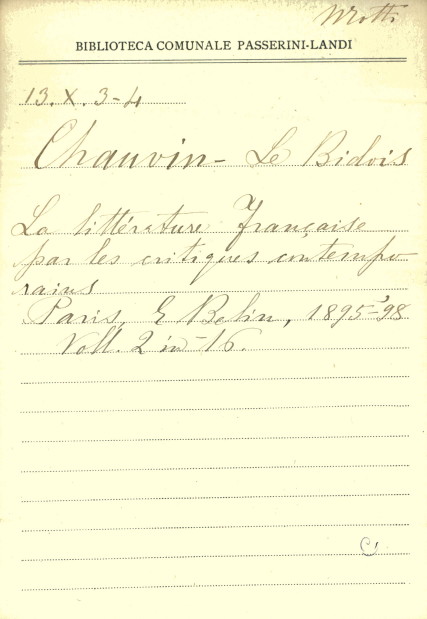 BIBLIOTECA COMUNALE PASSERINI-LANDI
13. X. 3-4
Chauvin - Le Bidois
La littérature française
par les critiques contempo
rains
Paris, E Belin, 1895-98
Voll. 2 in-16.